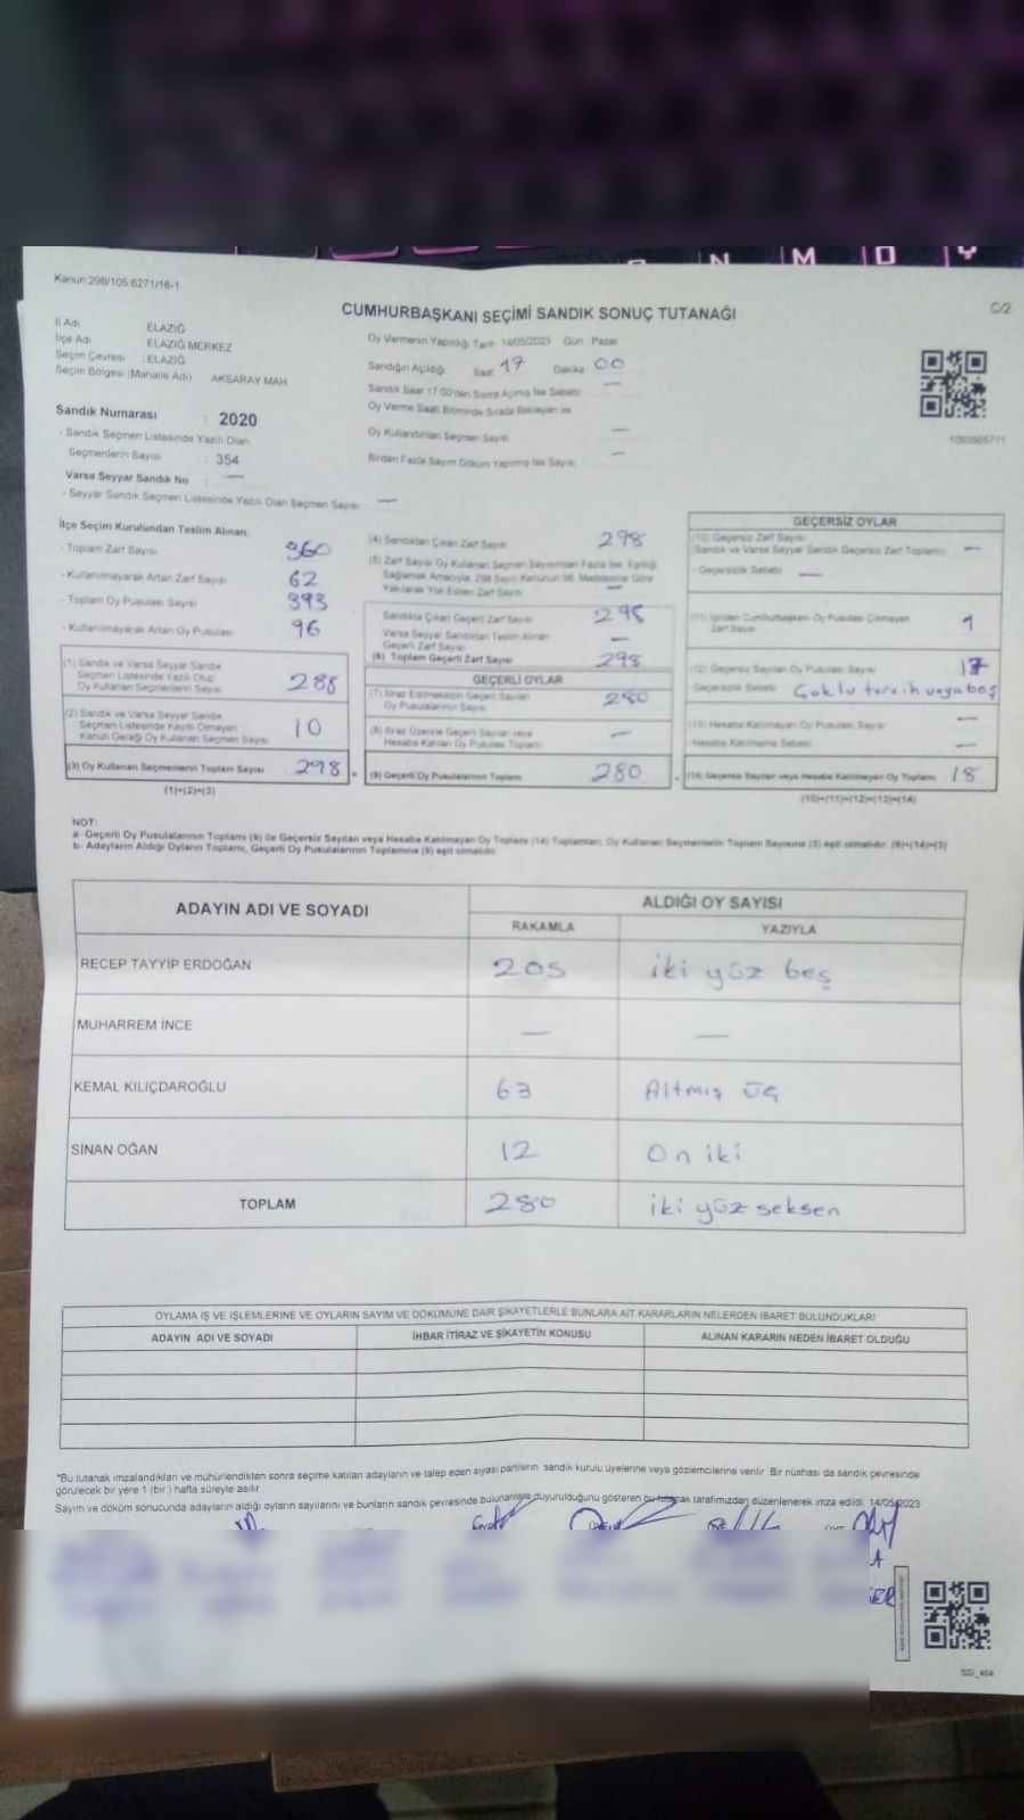 N M Ö
Kanun:298/105 6271/16-1
C/2
CUMHURBAŞKANI SEÇİMİ SANDIK SONUÇ TUTANAĞI
İl Adı : ELAZIĞ
İlçe Adı : ELAZIĞ MERKEZ
Seçim Çevresi : ELAZIĞ
Seçim Bölgesi (Mahalle Adı) AKSARAY MAH
Oy Vermenin Yapıldığı Tarih 14/05/2023 Gün Pazar
Sandığın Açıldığı Saat 17 Dakika 00
Sandık Saat 17.00'den Sonra Açılmış İse Sebebi —
Oy Verme Saati Bitiminde Sırada Bekleyen ve
Oy Kullandırılan Seçmen Sayısı —
Birden Fazla Sayım Döküm Yapılmış İse Sayısı —
Sandık Numarası : 2020
- Sandık Seçmen Listesinde Yazılı Olan
Seçmenlerin Sayısı : 354
Varsa Seyyar Sandık No : —
- Seyyar Sandık Seçmen Listesinde Yazılı Olan Seçmen Sayısı —
İlçe Seçim Kurulundan Teslim Alınan:
- Toplam Zarf Sayısı 360
- Kullanılmayarak Artan Zarf Sayısı 62
- Toplam Oy Pusulası Sayısı 393
- Kullanılmayarak Artan Oy Pusulası 96
(1) Sandık ve Varsa Seyyar Sandık
Seçmen Listesinde Yazılı Olup
Oy Kullanan Seçmenlerin Sayısı 288
(2) Sandık ve Varsa Seyyar Sandık
Seçmen Listesinde Kayıtlı Olmayan
Kanun Gereği Oy Kullanan Seçmen Sayısı 10
(3) Oy Kullanan Seçmenlerin Toplam Sayısı 298
(1)+(2)=(3)
(4) Sandıktan Çıkan Zarf Sayısı 298
(5) Zarf Sayısı Oy Kullanan Seçmen Sayısından Fazla İse, Eşitliği
Sağlamak Amacıyla, 298 Sayılı Kanunun 98. Maddesine Göre
Yakılarak Yok Edilen Zarf Sayısı —
Sandıkta Çıkan Geçerli Zarf Sayısı 298
Varsa Seyyar Sandıktan Teslim Alınan
Geçerli Zarf Sayısı —
(6) Toplam Geçerli Zarf Sayısı 298
GEÇERLİ OYLAR
(7) İtiraz Edilmeksizin Geçerli Sayılan
Oy Pusulalarının Sayısı 280
(8) İtiraz Üzerine Geçerli Sayılan veya
Hesaba Katılan Oy Pusulası Toplamı —
(9) Geçerli Oy Pusulalarının Toplamı 280
GEÇERSİZ OYLAR
(10) Geçersiz Zarf Sayısı
(Sandık ve Varsa Seyyar Sandık Geçersiz Zarf Toplamı) —
- Geçersizlik Sebebi —
(11) İçinden Cumhurbaşkanı Oy Pusulası Çıkmayan
Zarf Sayısı 1
(12) Geçersiz Sayılan Oy Pusulası Sayısı 17
- Geçersizlik Sebebi Çoklu tercih veya boş
(13) Hesaba Katılmayan Oy Pusulası Sayısı —
- Hesaba Katılmama Sebebi —
(14) Geçersiz Sayılan veya Hesaba Katılmayan Oy Toplamı 18
(10)+(11)+(12)+(13)=(14)
NOT:
a- Geçerli Oy Pusulalarının Toplamı (9) ile Geçersiz Sayılan veya Hesaba Katılmayan Oy Toplamı (14) Toplamları, Oy Kullanan Seçmenlerin Toplam Sayısına (3) eşit olmalıdır. (9)+(14)=(3)
b- Adayların Aldığı Oyların Toplamı, Geçerli Oy Pusulalarının Toplamına (9) eşit olmalıdır.
ADAYIN ADI VE SOYADI ALDIĞI OY SAYISI
RAKAMLA YAZIYLA
RECEP TAYYİP ERDOĞAN 205 iki yüz beş
MUHARREM İNCE — —
KEMAL KILIÇDAROĞLU 63 Altmış üç
SİNAN OĞAN 12 On iki
TOPLAM 280 iki yüz seksen
OYLAMA İŞ VE İŞLEMLERİNE VE OYLARIN SAYIM VE DÖKÜMÜNE DAİR ŞİKAYETLERLE BUNLARA AİT KARARLARIN NELERDEN İBARET BULUNDUKLARI
ADAYIN ADI VE SOYADI İHBAR İTİRAZ VE ŞİKAYETİN KONUSU ALINAN KARARIN NEDEN İBARET OLDUĞU
*Bu tutanak imzalandıktan ve mühürlendikten sonra seçime katılan adayların ve talep eden siyasi partilerin sandık kurulu üyelerine veya gözlemcilerine verilir. Bir nüshası da sandık çevresinde
görülecek bir yere 1 (bir) hafta süreyle asılır.
Sayım ve döküm sonucunda adayların aldığı oyların sayılarını ve bunların sandık çevresinde bulunanlara duyurulduğunu gösteren bu tutanak tarafımızdan düzenlenerek imza edildi. 14/05/2023